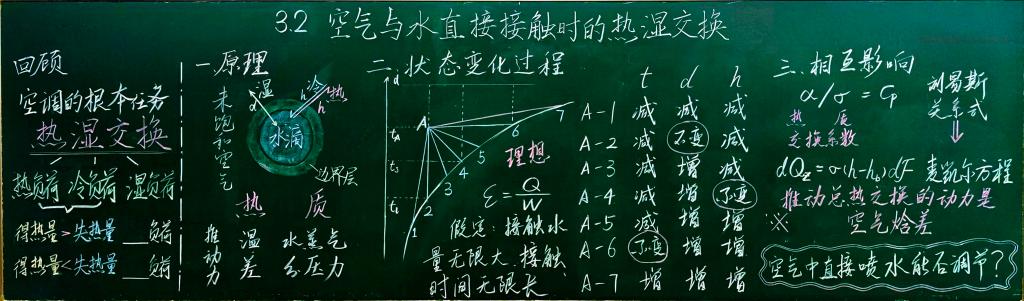 3.2 空气与水直接接触时的热湿交换
回顾
空调的根本任务
热湿交换
热负荷 冷负荷 湿负荷
得热量>失热量 ___负荷
得热量<失热量 ___负荷
一.原理
未饱和空气
湿
d
冷
h
热
h
水滴
边界层
热 质
推动力
温差
水蒸气分压力
二.状态变化过程
t
d
h
d
A
tA
ts
tl
1
2
3
4
5
6
7
理想
ε=Q/W
假定:接触水
量无限大、接触
时间无限长
A-1 减 减 减
A-2 减 不变 减
A-3 减 增 减
A-4 减 增 不变
A-5 减 增 增
A-6 不变 增 增
A-7 增 增 增
三.相互影响
α/σ=Cp
热 质
交换系数
刘易斯
关系式
dQz=σ(h-hb)dF 麦凯尔方程
※ 推动总热交换的动力是
空气焓差
空气中直接喷水能否调节?